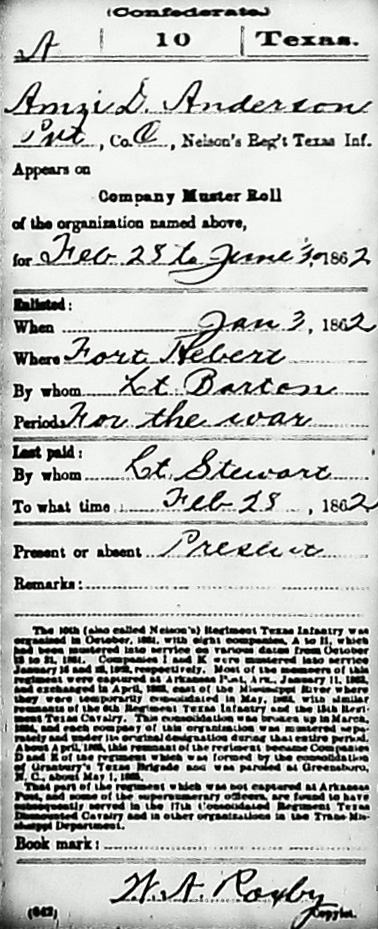 (Confederate.)
A | 10 | Texas.
Amzi D. Anderson
Pvt, Co. C, Nelson's Reg't Texas Inf.
Appears on
Company Muster Roll
of the organization named above,
for Feb 28 to June 30, 1862
Enlisted:
When Jan 3, 1862
Where Fort Hebert
By whom Lt. Barton
Period For the war
Last paid:
By whom Lt. Stewart
To what time Feb 28, 1862
Present or absent Present
Remarks:
The 10th (also called Nelson's) Regiment Texas Infantry was
organized in October, 1861, with eight companies, A to H, which
had been mustered into service on various dates from October
13 to 31, 1861. Companies I and K were mustered into service
January 16 and 23, 1862, respectively. Most of the members of this
regiment were captured at Arkansas Post, Ark., January 11, 1863,
and exchanged in April, 1863, east of the Mississippi River where
they were temporarily consolidated in May, 1863, with similar
remnants of the 6th Regiment Texas Infantry and the 15th Regi-
ment Texas Cavalry. This consolidation was broken up in March,
1864, and each company of this organization was mustered sepa-
rately and under its original designation during that entire period.
About April, 1865, this remnant of the regiment became Companies
D and E of the regiment which was formed by the consolidation
of Granbury's Texas Brigade and was paroled at Greensboro,
N. C., about May 1, 1865.
That part of the regiment which was not captured at Arkansas
Post, and some of the supernumerary officers, are found to have
subsequently served in the 17th Consolidated Regiment Texas
Dismounted Cavalry and in other organizations in the Trans-Mis-
sissippi Department.
Book mark:
W. A. Roxby
(642) Copyist.